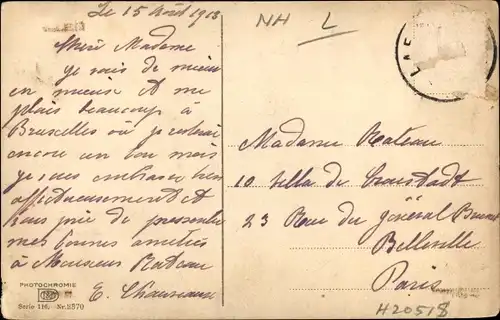 Le 15 Août 1913
NH L
LAE
Chère Madame
je vais de mieux
en mieux et me
plais beaucoup à
Bruxelles où je resterai
encore un bon mois
je vous embrasse bien
affectueusement et
vous prie de presenter
mes bonnes amitiés
à Monsieur Rateau
E. Chauveau
Madame Rateau
10 villa de Cronstadt
23 Rue du général Brunet
Belleville
Paris
H20518
PHOTOCHROMIE
Serie 116, Nr. 2870